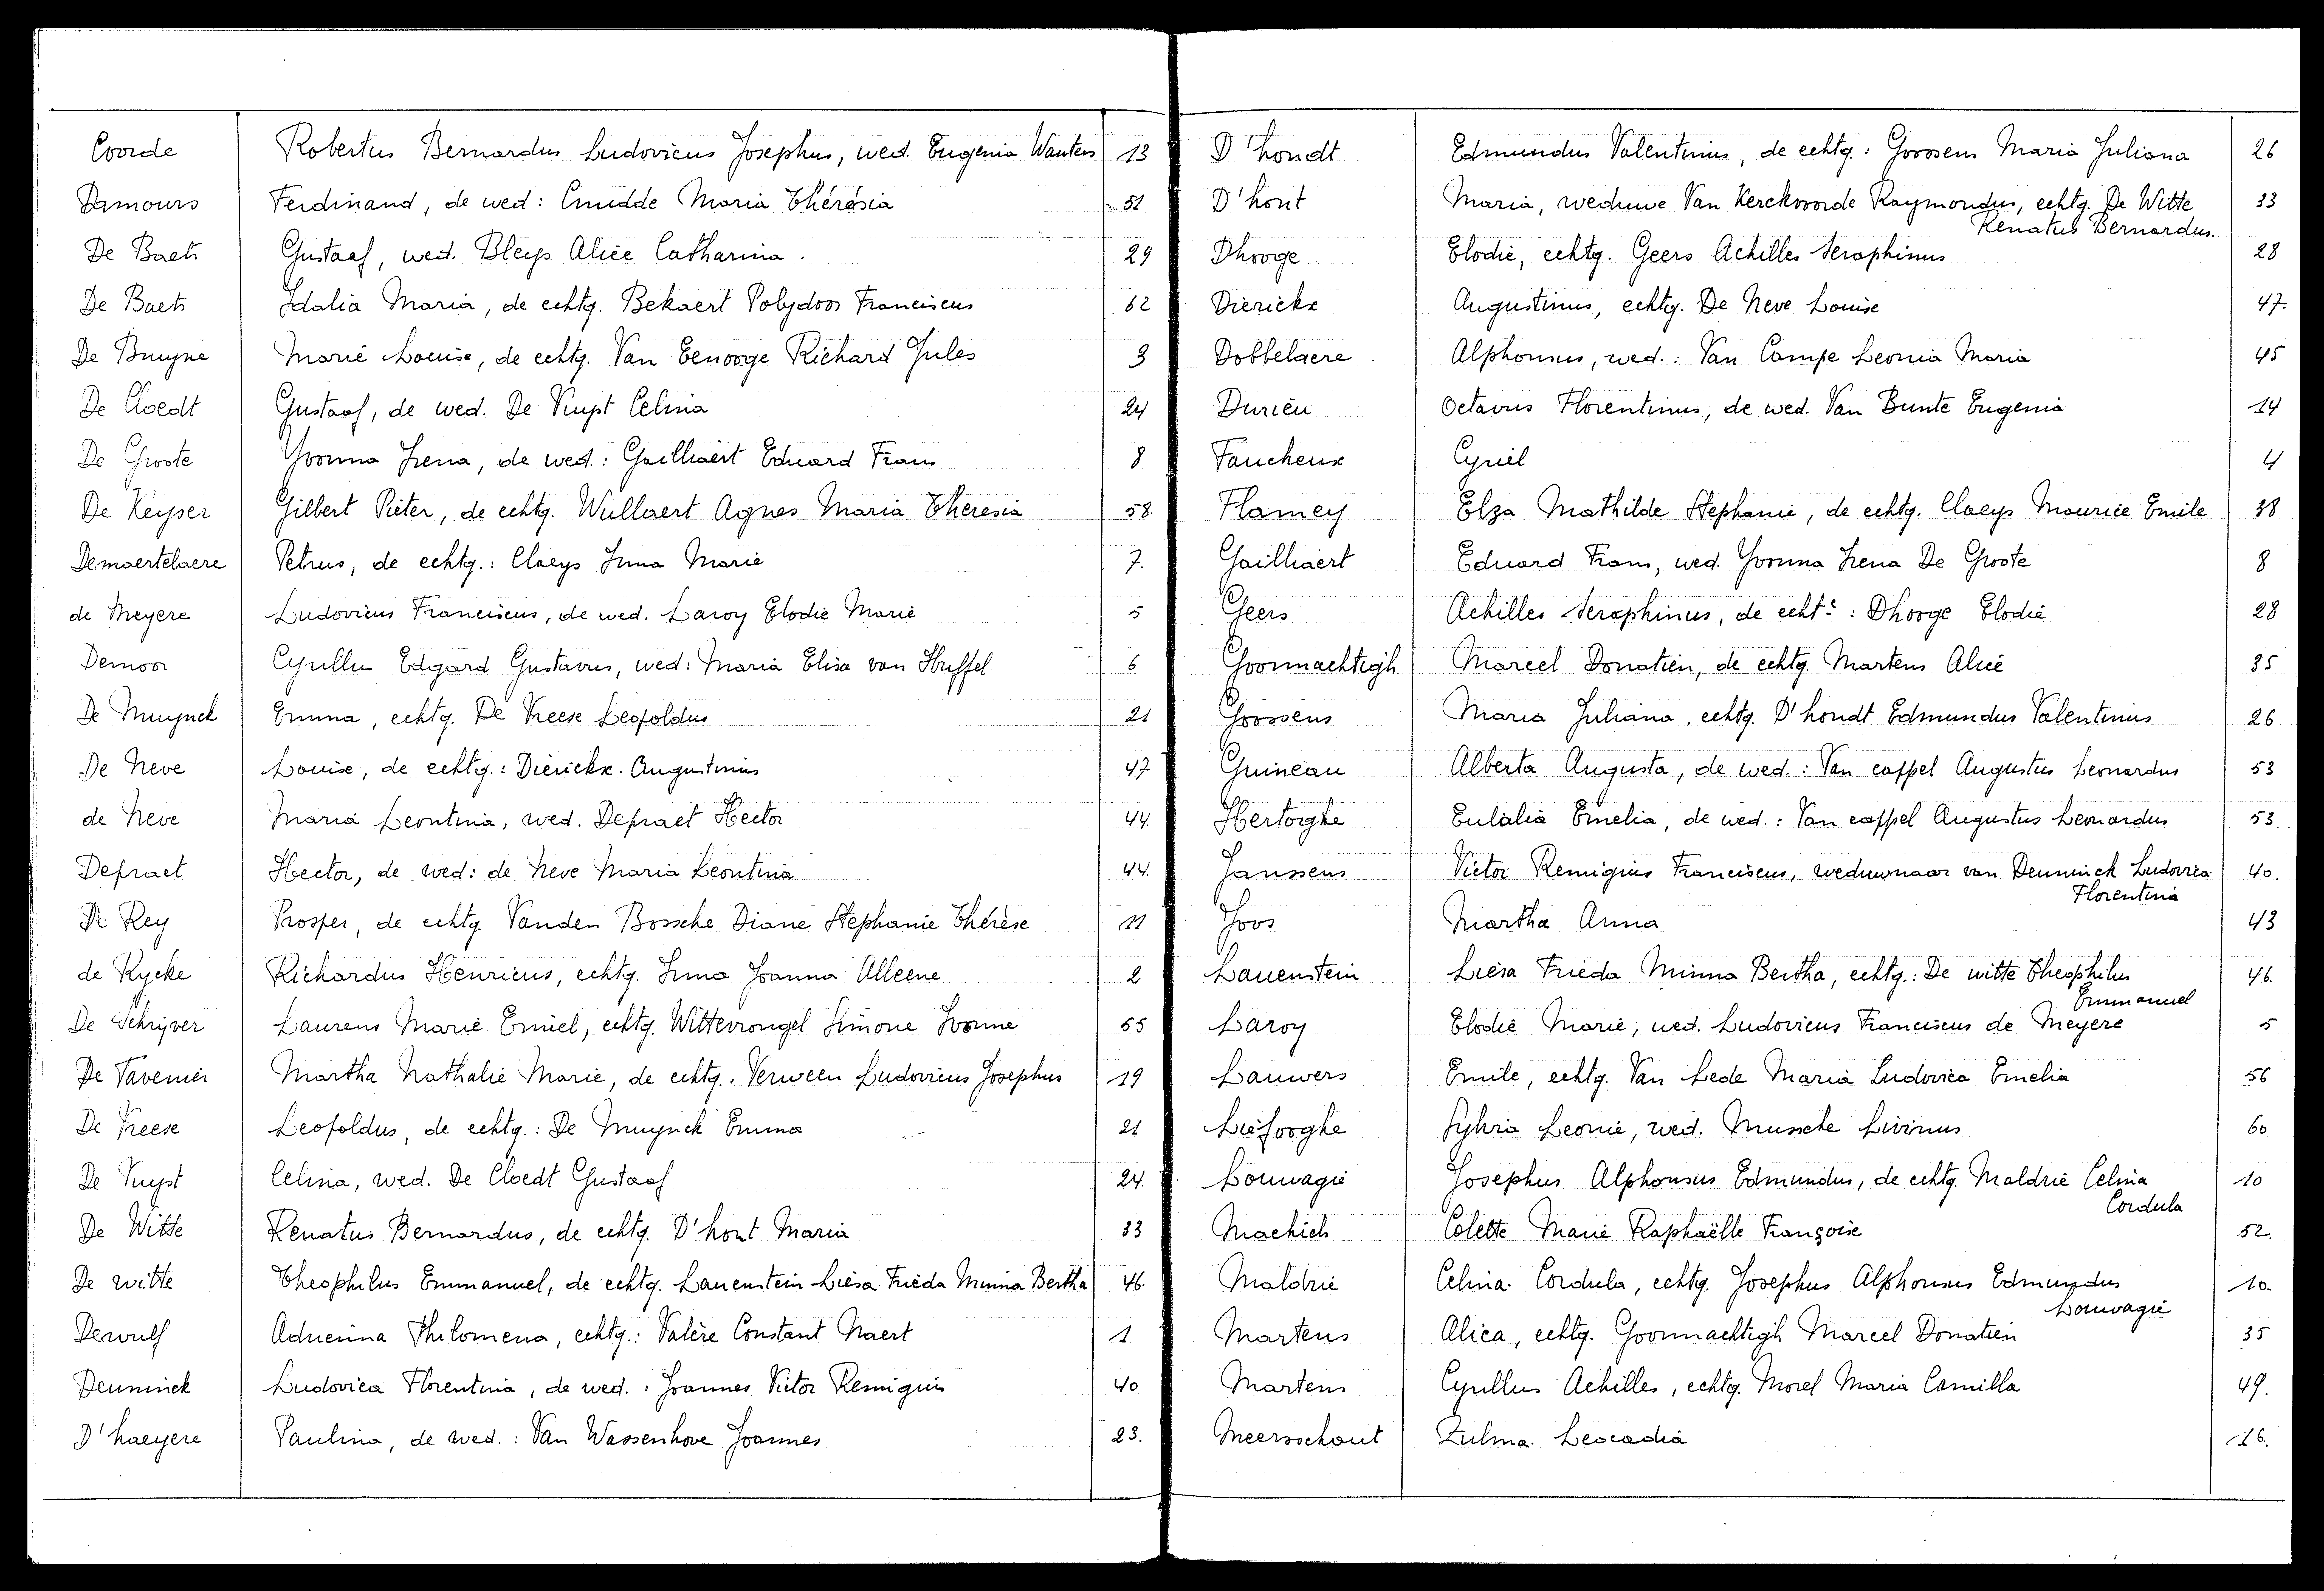 Coorde Robertus Bernardus Ludovicus Josephus, wed. Eugenia Wauters 13
Damours Ferdinand, de wed: Cnudde Maria Thérèsia 51
De Baets Gustaaf, wed. Bleijs Alice Catharina. 29
De Baets Idalia Maria, de echtg. Bekaert Polydoor Franciscus 62
De Bruyne Marie Louise, de echtg. Van Eenooge Richard Jules 3
De Cloedt Gustaaf, de wed. De Vuyst Celina 24
De Groote Yvonna Irena, de wed.: Gailliaert Eduard Frans 8
De Keyser Gilbert Pieter, de echtg. Wullaert Agnes Maria Theresia 58.
Demaertelaere Petrus, de echtg.: Claeys Irma Marie 7.
de Meyere Ludovicus Franciscus, de wed. Laroy Elodie Marie 5
Demoor Cyrillus Edgard Gustavus, wed: Maria Elisa van Huffel 6
De Muynck Emma, echtg. De Vreese Leopoldus 21
De Neve Louise, de echtg.: Dierickx. Augustinus 47
de Neve Maria Leontina, wed. Depraet Hector 44.
Depraet Hector, de wed: de Neve Maria Leontina 44.
De Rey Prosper, de echtg Vanden Bossche Diane Stephanie Thérèse 11
de Rycke Richardus Henricus, echtg. Irma Joanna Alleene 2
De Schrijver Laurens Marie Emiel, echtg. Wittevrongel Simone Ivonne 55
De Tavenier Martha Nathalie Marie, de echtg. Verween Ludovicus Josephus 19
De Vreese Leopoldus, de echtg.: De Muynck Emma 21
De Vuyst Celina, wed. De Cloedt Gustaaf 24.
De Witte Renatus Bernardus, de echtg. D'hont Maria 33
De witte Theophilus Emmanuel, de echtg. Lauenstein Liesa Frieda Minna Bertha 46.
Dewulf Adrienna Philomena, echtg.: Valère Constant Naert 1
Deuninck Ludovica Florentina, de wed.: Joannes Victor Remigius 40
D'haeyere Paulina, de wed.: Van Wassenhove Joannes 23.
D'hondt Edmundus Valentinus, de echtg.: Goossens Maria Juliana 26
D'hont Maria, weduwe Van Kerckvoorde Raymondus, echtg. De Witte 33
Renatus Bernardus.
Dhooge Elodie, echtg. Geers Achilles Seraphinus 28
Dierickx Augustinus, echtg. De Neve Louise 47.
Dobbelaere Alphonsus, wed.: Van Campe Leonia Maria 45
Durieu Octavus Florentinus, de wed. Van Bunte Eugenia 14
Faucheux Cyriel 4
Flamey Elza Mathilde Stephanie, de echtg. Claeys Maurice Emile 38
Gailliaert Eduard Frans, wed. Yvonna Irena De Groote 8
Geers Achilles Seraphinus, de echtg: Dhooge Elodie 28
Goormachtigh Marcel Donatien, de echtg. Martens Alice 35
Goossens Maria Juliana, echtg. D'hondt Edmundus Valentinus 26
Guineau Alberta Augusta, de wed.: Van cappel Augustus Leonardus 53
Hertoighe Eulalia Emelia, de wed.: Van cappel Augustus Leonardus 53
Janssens Victor Remigius Franciscus, weduwnaar van Deuninck Ludovica 40.
Florentina
Joos Martha Anna 43
Lauenstein Liesa Frieda Minna Bertha, echtg.: De witte Theophilus 46.
Emmanuel
Laroy Elodie Marie, wed. Ludovicus Franciscus de Meyere 5
Lauwers Emile, echtg. Van Lede Maria Ludovica Emelia 56
Liefooghe Sylvia Leonie, wed. Mussche Livinus 60
Louwagie Josephus Alphonsus Edmundus, de echtg. Maldrie Celina 10
Cordula
Machiels Colette Marie Raphaëlle Françoise 52.
Maldrie Celina Cordula, echtg. Josephus Alphonsus Edmundus 10.
Louwagie
Martens Alica, echtg. Goormachtigh Marcel Donatien 35
Martens Cyrillus Achilles, echtg. Morel Maria Camilla 49.
Meersschaut Zulma Leocadia 16.